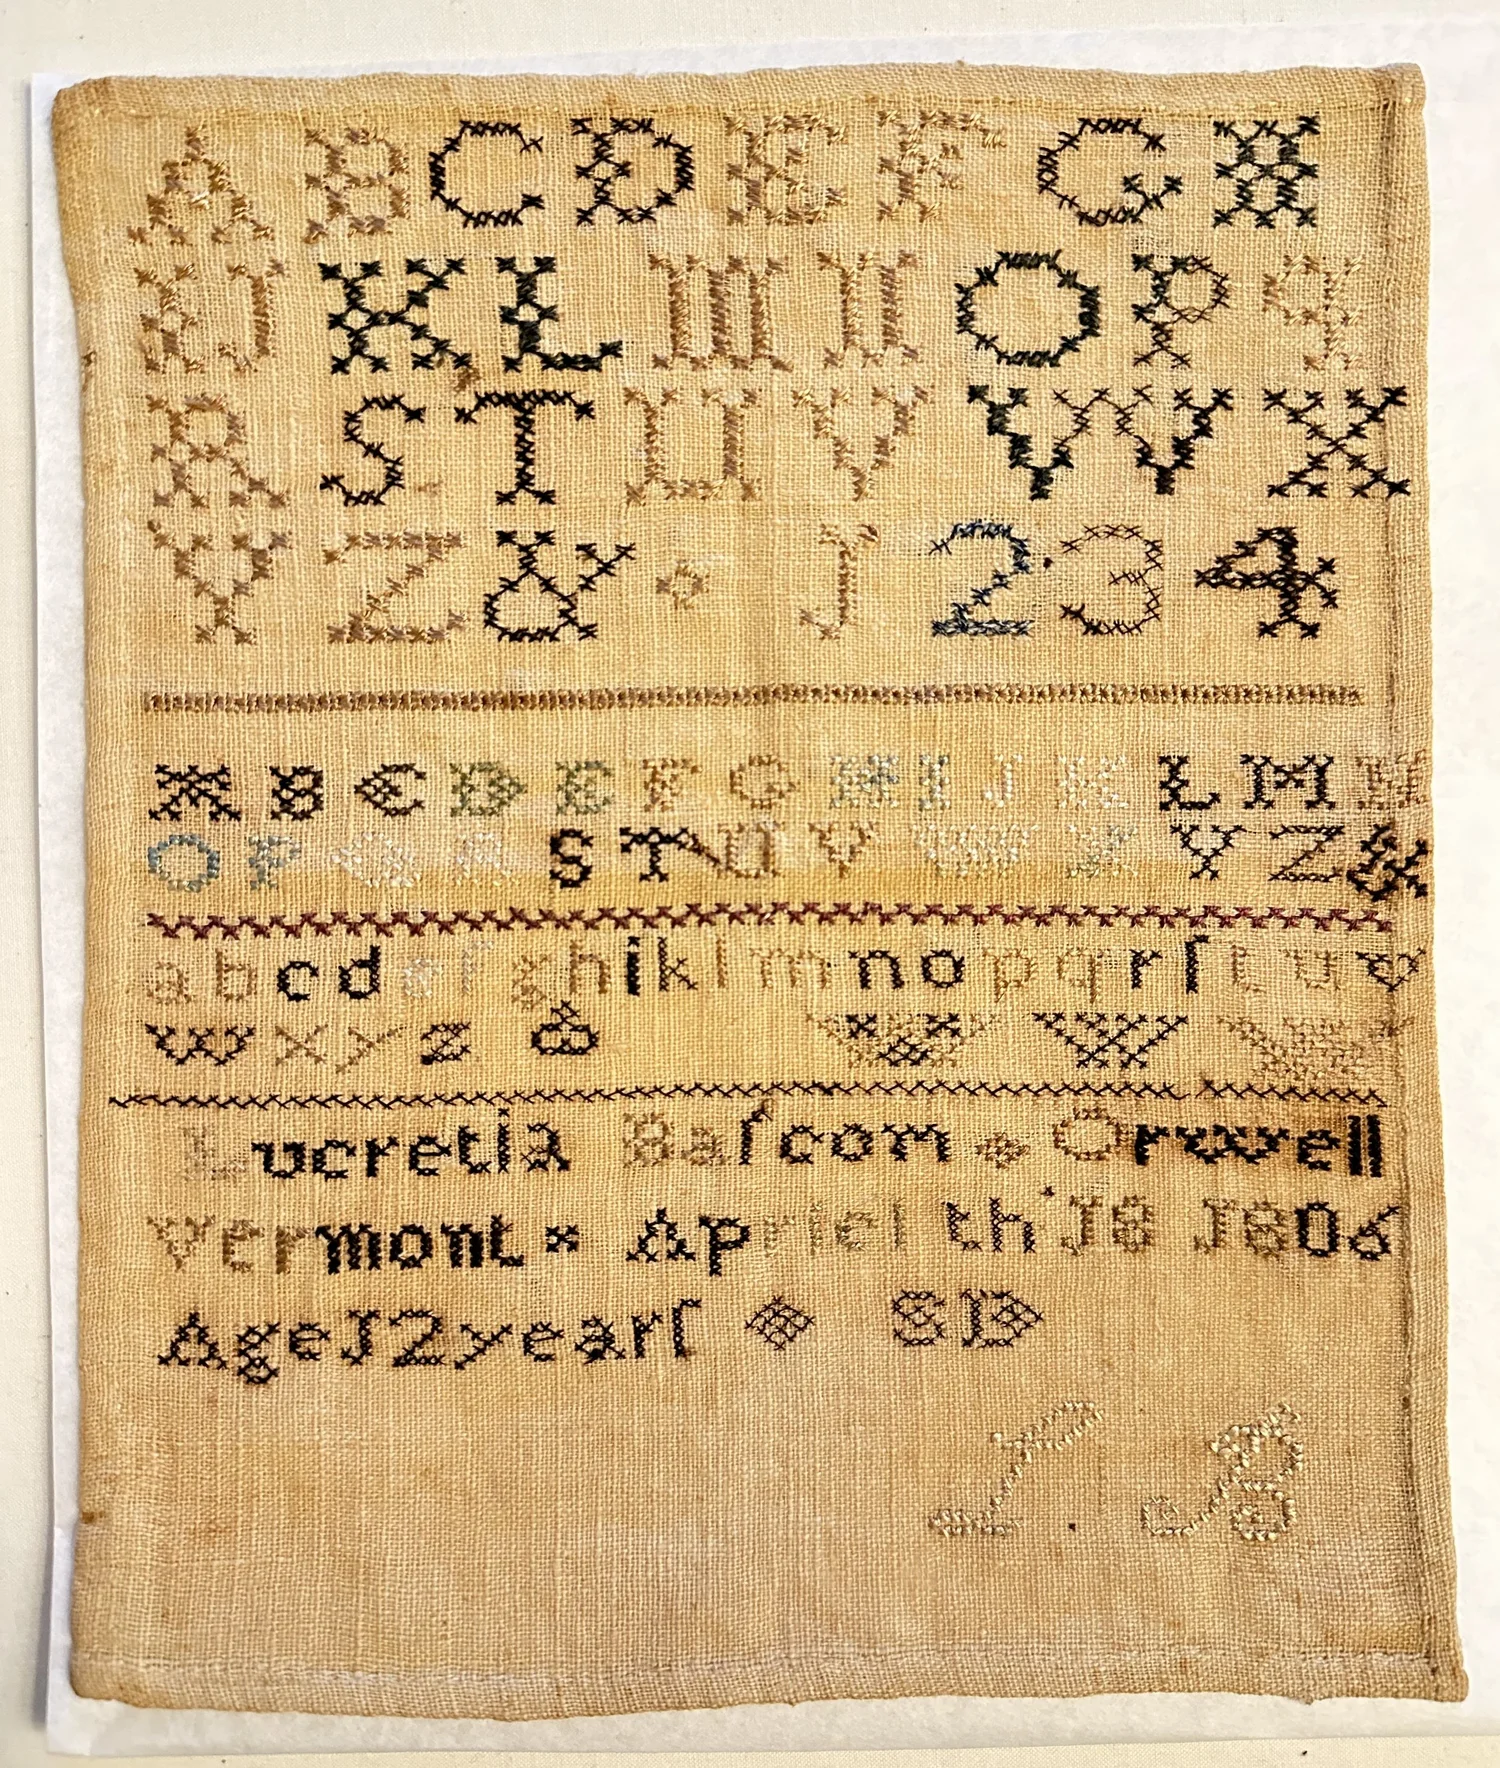 A B C D E F G H
I J K L M N O P Q
R S T U V W X
Y Z & J 2 3 4
A B C D E F G H I J K L M N
O P Q R S T U V W X Y Z &
a b c d e f g h i k l m n o p q r ſ t u v
w x y z &
Lucretia Balcom Orwell
Vermont Apriel th J8 J806
Age J2 yearſ SD
L B